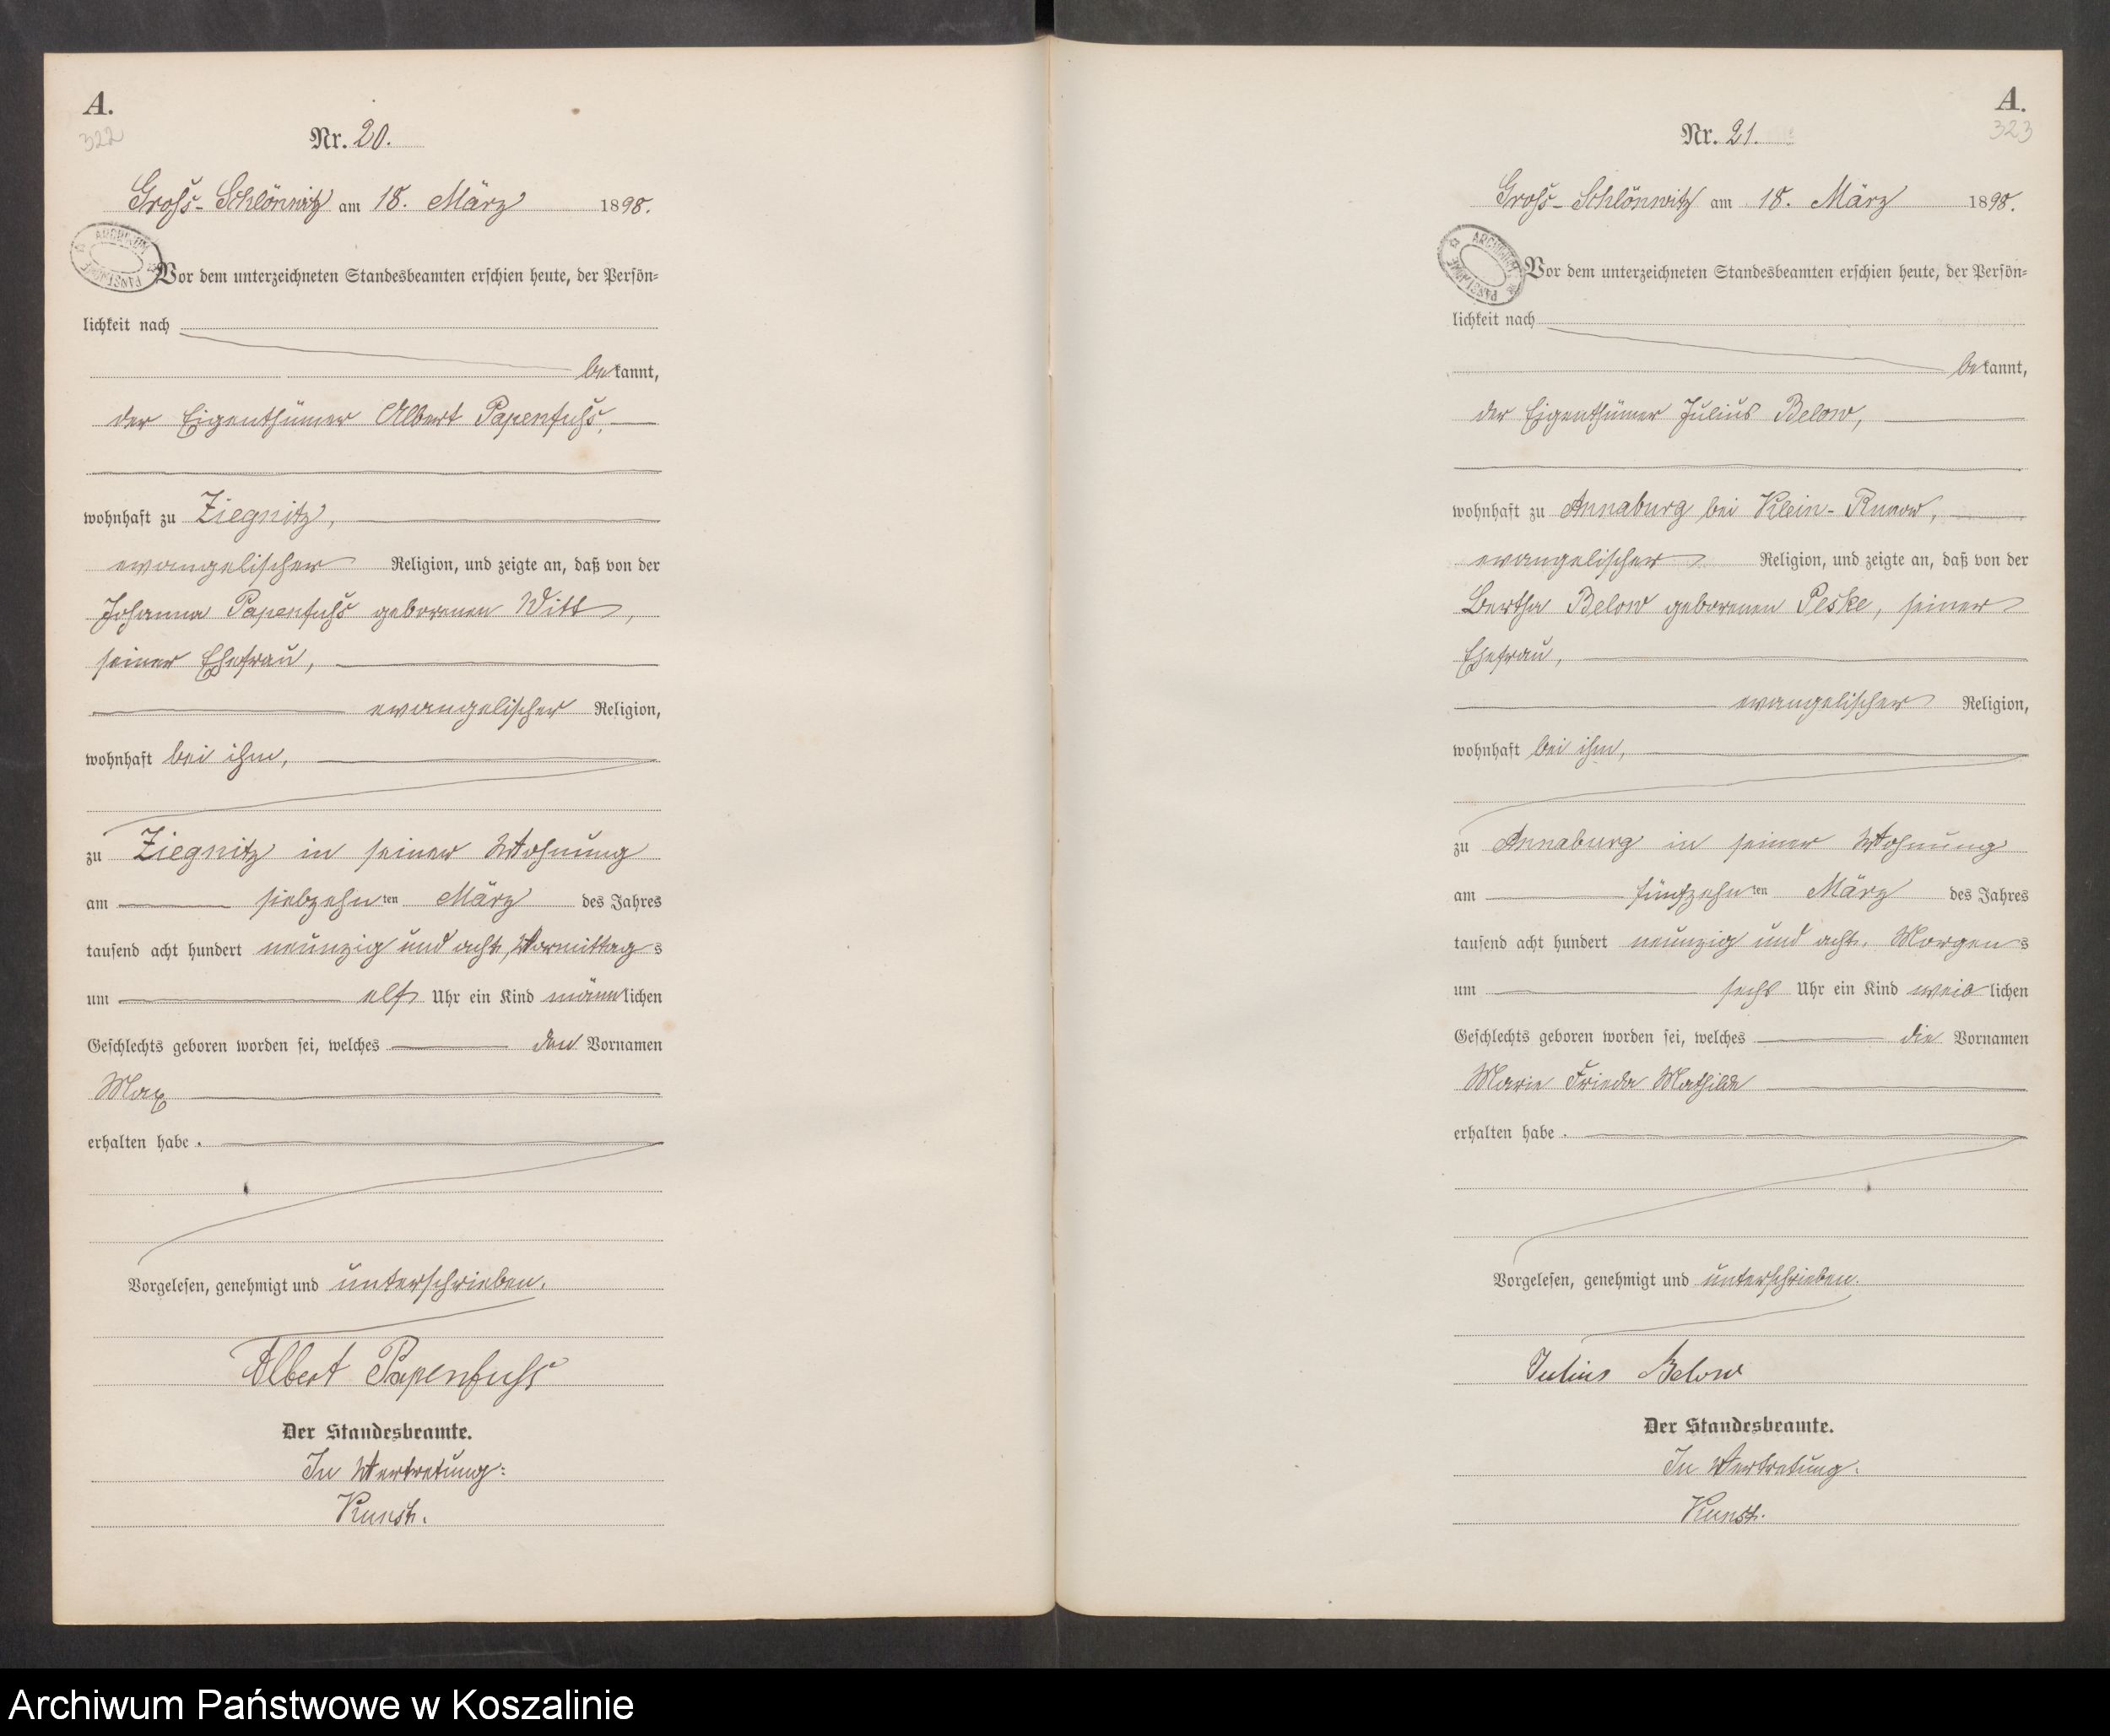 A.
322
Nr. 20.
Gross-Schlönwitz am 18. März 1898.
Vor dem unterzeichneten Standesbeamten erschien heute, der Persön=
lichkeit nach
bekannt,
der Eigenthümer Albert Papenfuhs,
wohnhaft zu Ziegnitz,
evangelischer Religion, und zeigte an, daß von der
Johanna Papenfuhs geborenen Witt,
seiner Ehefrau,
evangelischer Religion,
wohnhaft bei ihm,
zu Ziegnitz in seiner Wohnung
am siebzehnten März des Jahres
tausend acht hundert neunzig und acht, Vormittags
um elf Uhr ein Kind männlichen
Geschlechts geboren worden sei, welches den Vornamen
Max
erhalten habe.
Vorgelesen, genehmigt und unterschrieben.
Albert Papenfuhs
Der Standesbeamte.
In Vertretung:
Kunst.
A.
323
Nr. 21.
Gross-Schlönwitz am 18. März 1898.
Vor dem unterzeichneten Standesbeamten erschien heute, der Persön=
lichkeit nach
bekannt,
der Eigenthümer Julius Below,
wohnhaft zu Annaburg bei Klein-Runow,
evangelischer Religion, und zeigte an, daß von der
Bertha Below geborenen Peske, seiner
Ehefrau,
evangelischer Religion,
wohnhaft bei ihm,
zu Annaburg in seiner Wohnung
am fünfzehnten März des Jahres
tausend acht hundert neunzig und acht, Morgens
um sechs Uhr ein Kind weiblichen
Geschlechts geboren worden sei, welches die Vornamen
Marie Frieda Mathilde
erhalten habe.
Vorgelesen, genehmigt und unterschrieben.
Julius Below
Der Standesbeamte.
In Vertretung:
Kunst.
Archiwum Państwowe w Koszalinie